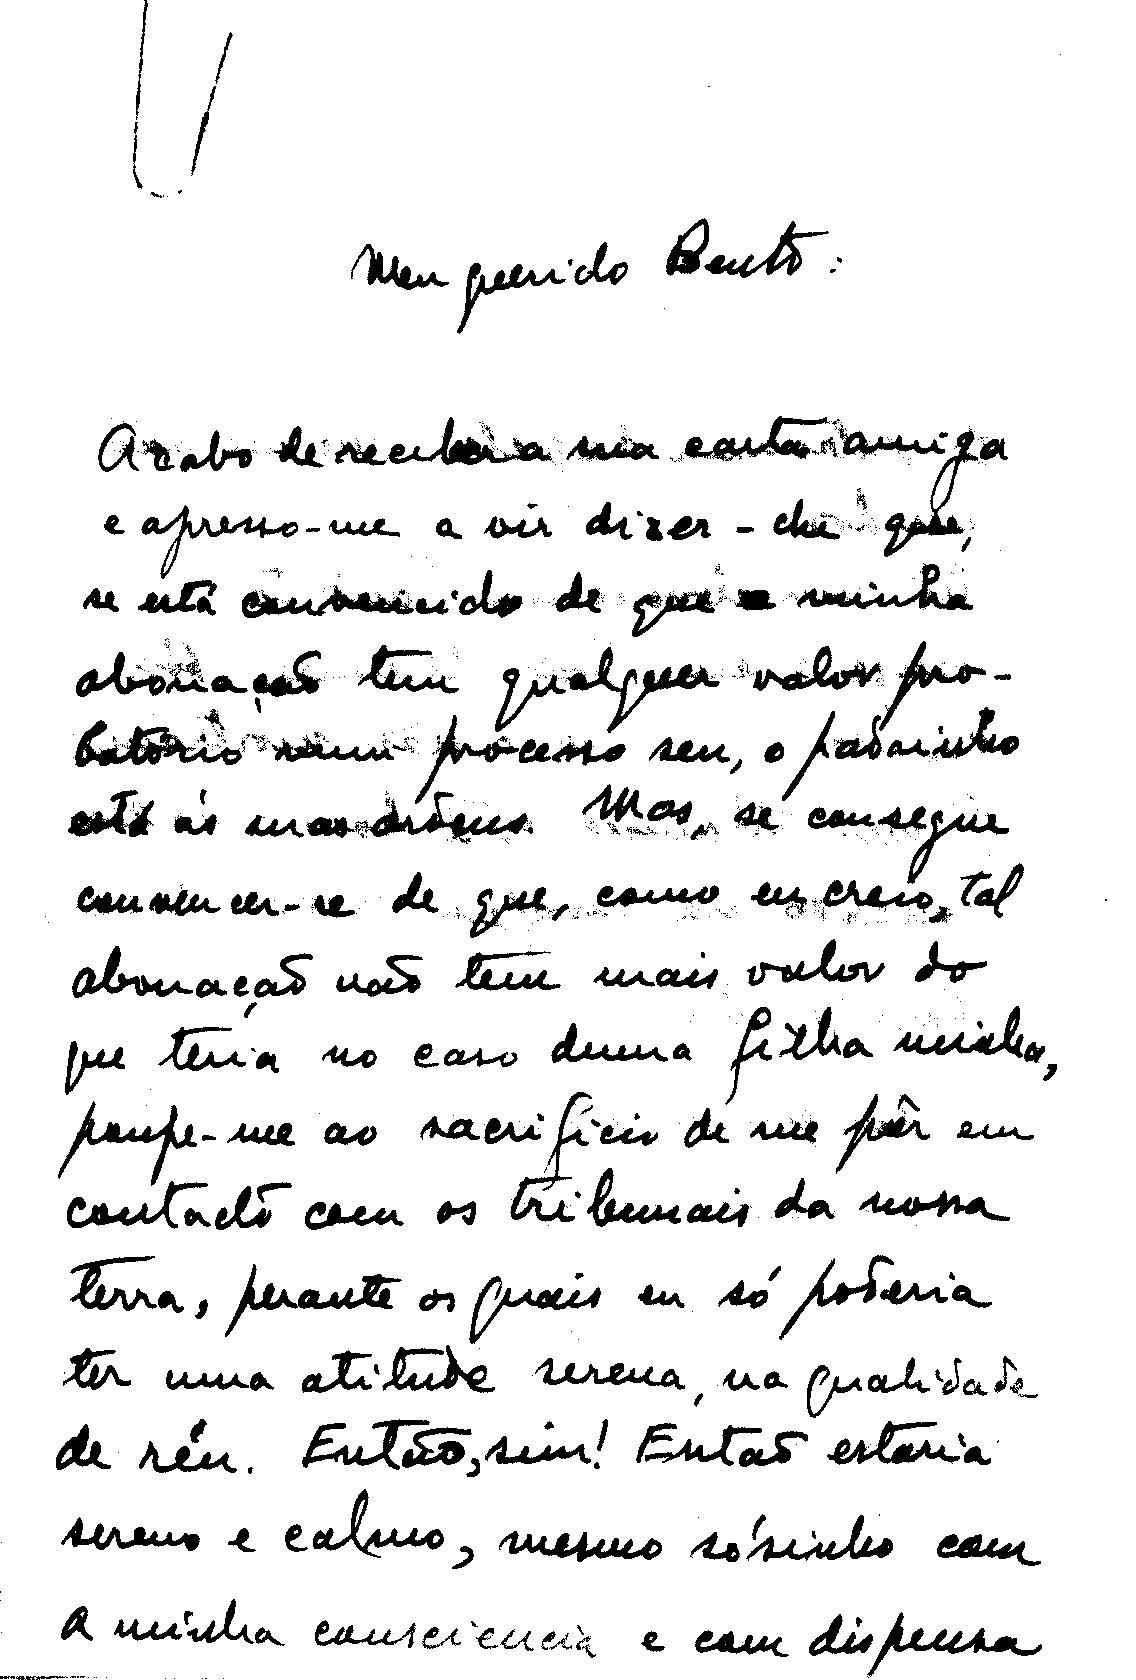 Meu querido Bento:
Acabo de receber a sua carta amiga
e apresso-me a vir dizer-lhe que,
se está convencido de que a minha
abonação tem qualquer valor pro-
batório num processo seu, o padrinho
está ás suas ordens. Mas, se consegue
convencer-se de que, como eu creio, tal
abonação não tem mais valor do
que teria no caso duma filha minha,
poupe-me ao sacrificio de me pôr em
contacto com os tribunais da nossa
terra, perante os quais eu só poderia
ter uma atitude serena, na qualidade
de réu. Então, sim! Então estaria
sereno e calmo, mesmo sósinho com
a minha consciencia e com dispensa